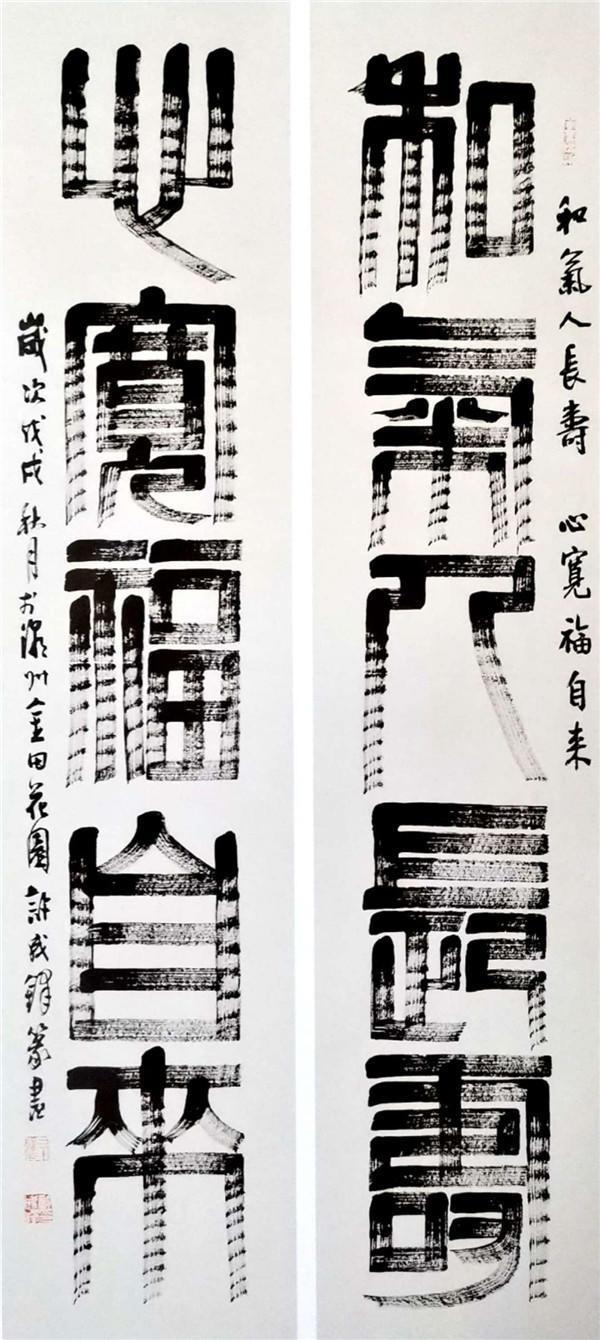 和氣人長壽 心寬福自来
和氣人長壽
心寬福自來
歲次戊戌秋月於潮州金田花園許成鋒篆書